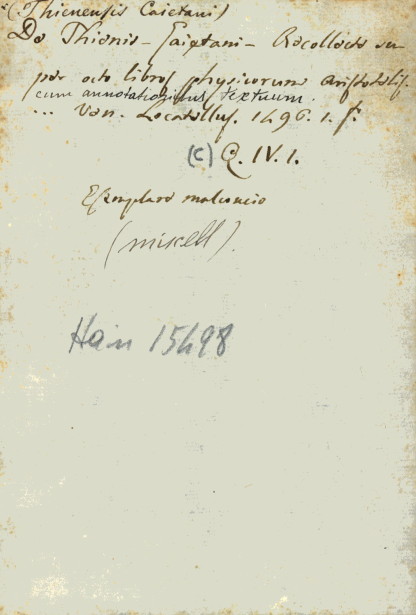 (Thienensis Caietani)
De Thienis - Gaietani - Recollecte su-
per octo libros physicorum Aristotelis.
cum annotationibus textuum.
... Ven. Locatellus. 1496. 1. f.
(C) Q. IV. 1.
Esemplare malconcio
(miscell).
Hain 15498